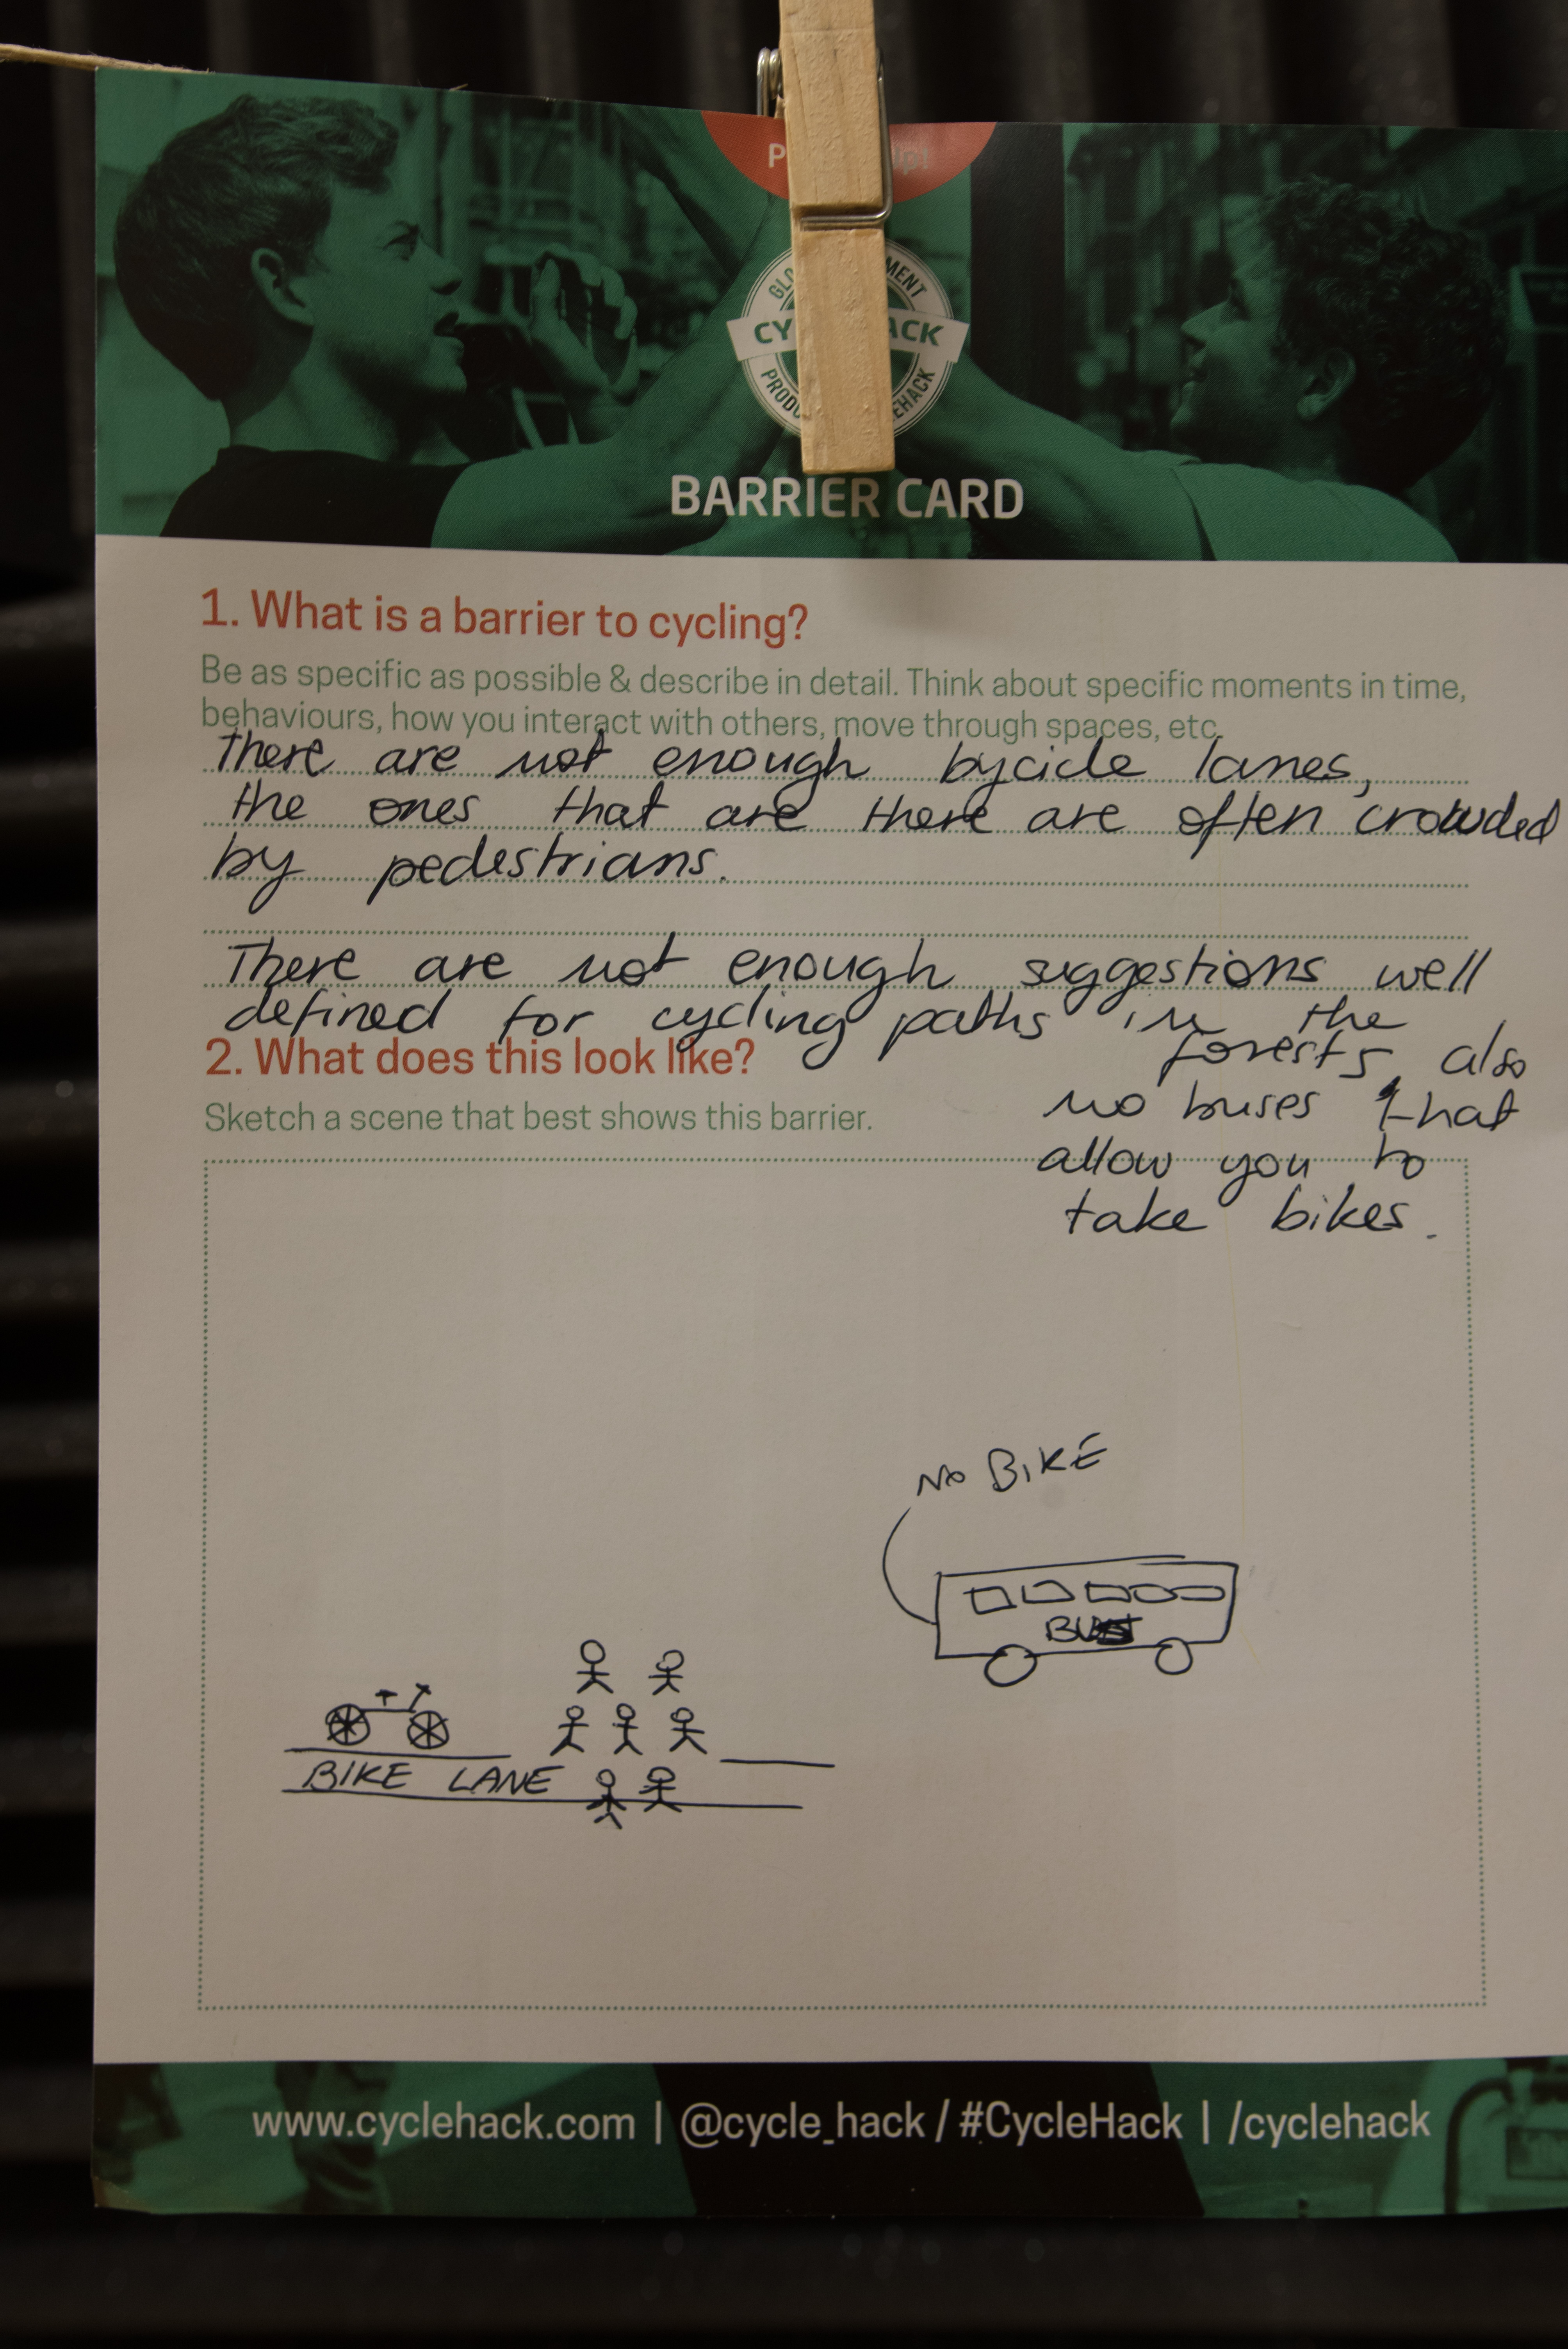 BARRIER CARD
1. What is a barrier to cycling?
Be as specific as possible & describe in detail. Think about specific moments in time,
behaviours, how you interact with others, move through spaces, etc.
There are not enough bycicle lanes,
the ones that are there are often crowded
by pedestrians.
There are not enough suggestions well
defined for cycling paths in the
forests, also
no buses that
allow you to
take bikes.
2. What does this look like?
Sketch a scene that best shows this barrier.
NO BIKE
BUS
BIKE LANE
www.cyclehack.com | @cycle_hack / #CycleHack | /cyclehack